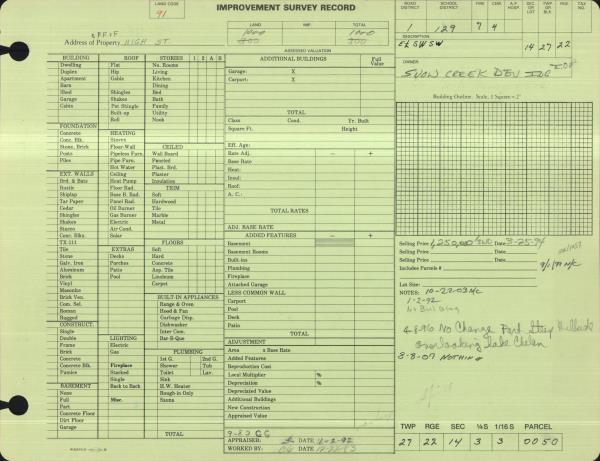 LAND CODE
91
IMPROVEMENT SURVEY RECORD
ROAD DISTRICT
SCHOOL DISTRICT
FPS
CHG
A.P. HOSP
SEC OR LOT
TWP OR BLO
RGE
TAX NO.
1 129 7 4
LAND IMP. TOTAL
1000 1000
300 300
RFFIF
Address of Property HIGH ST.
ASSESSED VALUATION
DESCRIPTION
E½ SW SW 14 27 22
OWNER
SNOW CREEK DEV INC
Building Outline: Scale, 1 Square = 2'
BUILDING
Dwelling
Duplex
Apartment
Barn
Shed
Garage
Cabin
FOUNDATION
Concrete
Conc. Blk.
Stone, Brick
Posts
Piles
EXT. WALLS
Brd. & Bats
Rustic
Shiplap
Tar Paper
Cedar
Shingles
Shakes
Stucco
Conc. Blks.
TX-111
Tile
Stone
Galv. Iron
Aluminum
Brick
Vinyl
Masonite
Brick Ven.
Com. Sel.
Roman
Rugged
CONSTRUCT.
Single
Double
Frame
Brick
Concrete
Concrete Blk.
Pumice
BASEMENT
None
Full
Part
Concrete Floor
Dirt Floor
Garage
ROOF
Flat
Hip
Gable
Shingles
Shakes
Pat Shingle
Built-up
Roll
HEATING
Stoves
Floor-Wall
Pipeless Furn.
Pipe Furn.
Hot Water
Ceiling
Heat Pump
Floor Rad.
Base B. Rad.
Panel Rad.
Oil Burner
Gas Burner
Electric
Air Cond.
Solar
EXTRAS
Decks
Porches
Patio
Pool
LIGHTING
Electric
Gas
Fireplace
Stacked
Single
Back to Back
Misc.
STORIES 1 2 A S
No. Rooms
Living
Kitchen
Dining
Bed
Bath
Family
Utility
Nook
CEILED
Wall Board
Paneled
Plast. Brd.
Plaster
Insulation
TRIM
Soft
Hardwood
Tile
Marble
Metal
FLOORS
Soft
Hard
Concrete
Asp. Tile
Linoleum
Carpet
BUILT-IN APPLIANCES
Range & Oven
Hood & Fan
Garbage Disp.
Dishwasher
Inter Com.
Bar-B-Que
PLUMBING
1st G. 2nd G.
Shower Tub
Toilet Lav.
Sink
H.W. Heater
Rough-in Only
Sauna
TOTAL
ADDITIONAL BUILDINGS Full Value
Garage: X
Carport: X
TOTAL
Class Cond. Yr. Built
Square Ft. Height
Eff. Age:
Rate Adj. – +
Base Rate
Heat:
Insul:
Roof:
A. C.:
TOTAL RATES
ADJ. BASE RATE
ADDED FEATURES – +
Basement
Basement Rooms
Built-ins
Plumbing
Fireplace
Attached Garage
LESS COMMON WALL
Carport
Pool
Deck
Patio
TOTAL
ADJUSTMENT
Area x Base Rate
Added Features
Reproduction Cost
Local Multiplier %
Depreciation %
Depreciated Value
Additional Buildings
New Construction
Appraised Value
9-82 CG
APPRAISER: DATE 1-2-92
WORKED BY: DATE 12-22-83
Selling Price 1,250,000 Date 3-25-94
Selling Price Date
Selling Price Date
Includes Parcels #
Lot Size:
NOTES: 10-22-03 MC
1-2-92
No Building
4-8-96 No Change Part Steep Hillside
overlooking Lake Chelan
3-8-07 NOTHING
TWP RGE SEC ¼S 1/16S PARCEL
27 22 14 3 3 0050